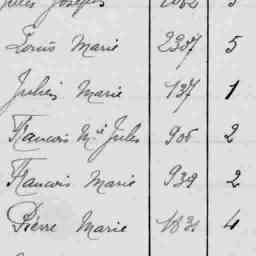 Jules Joseph
Louis Marie 2307 5
Julien Marie 137 1
Francois Mie Jules 906 2
Francois Marie 939 2
Pierre Marie 1831 4